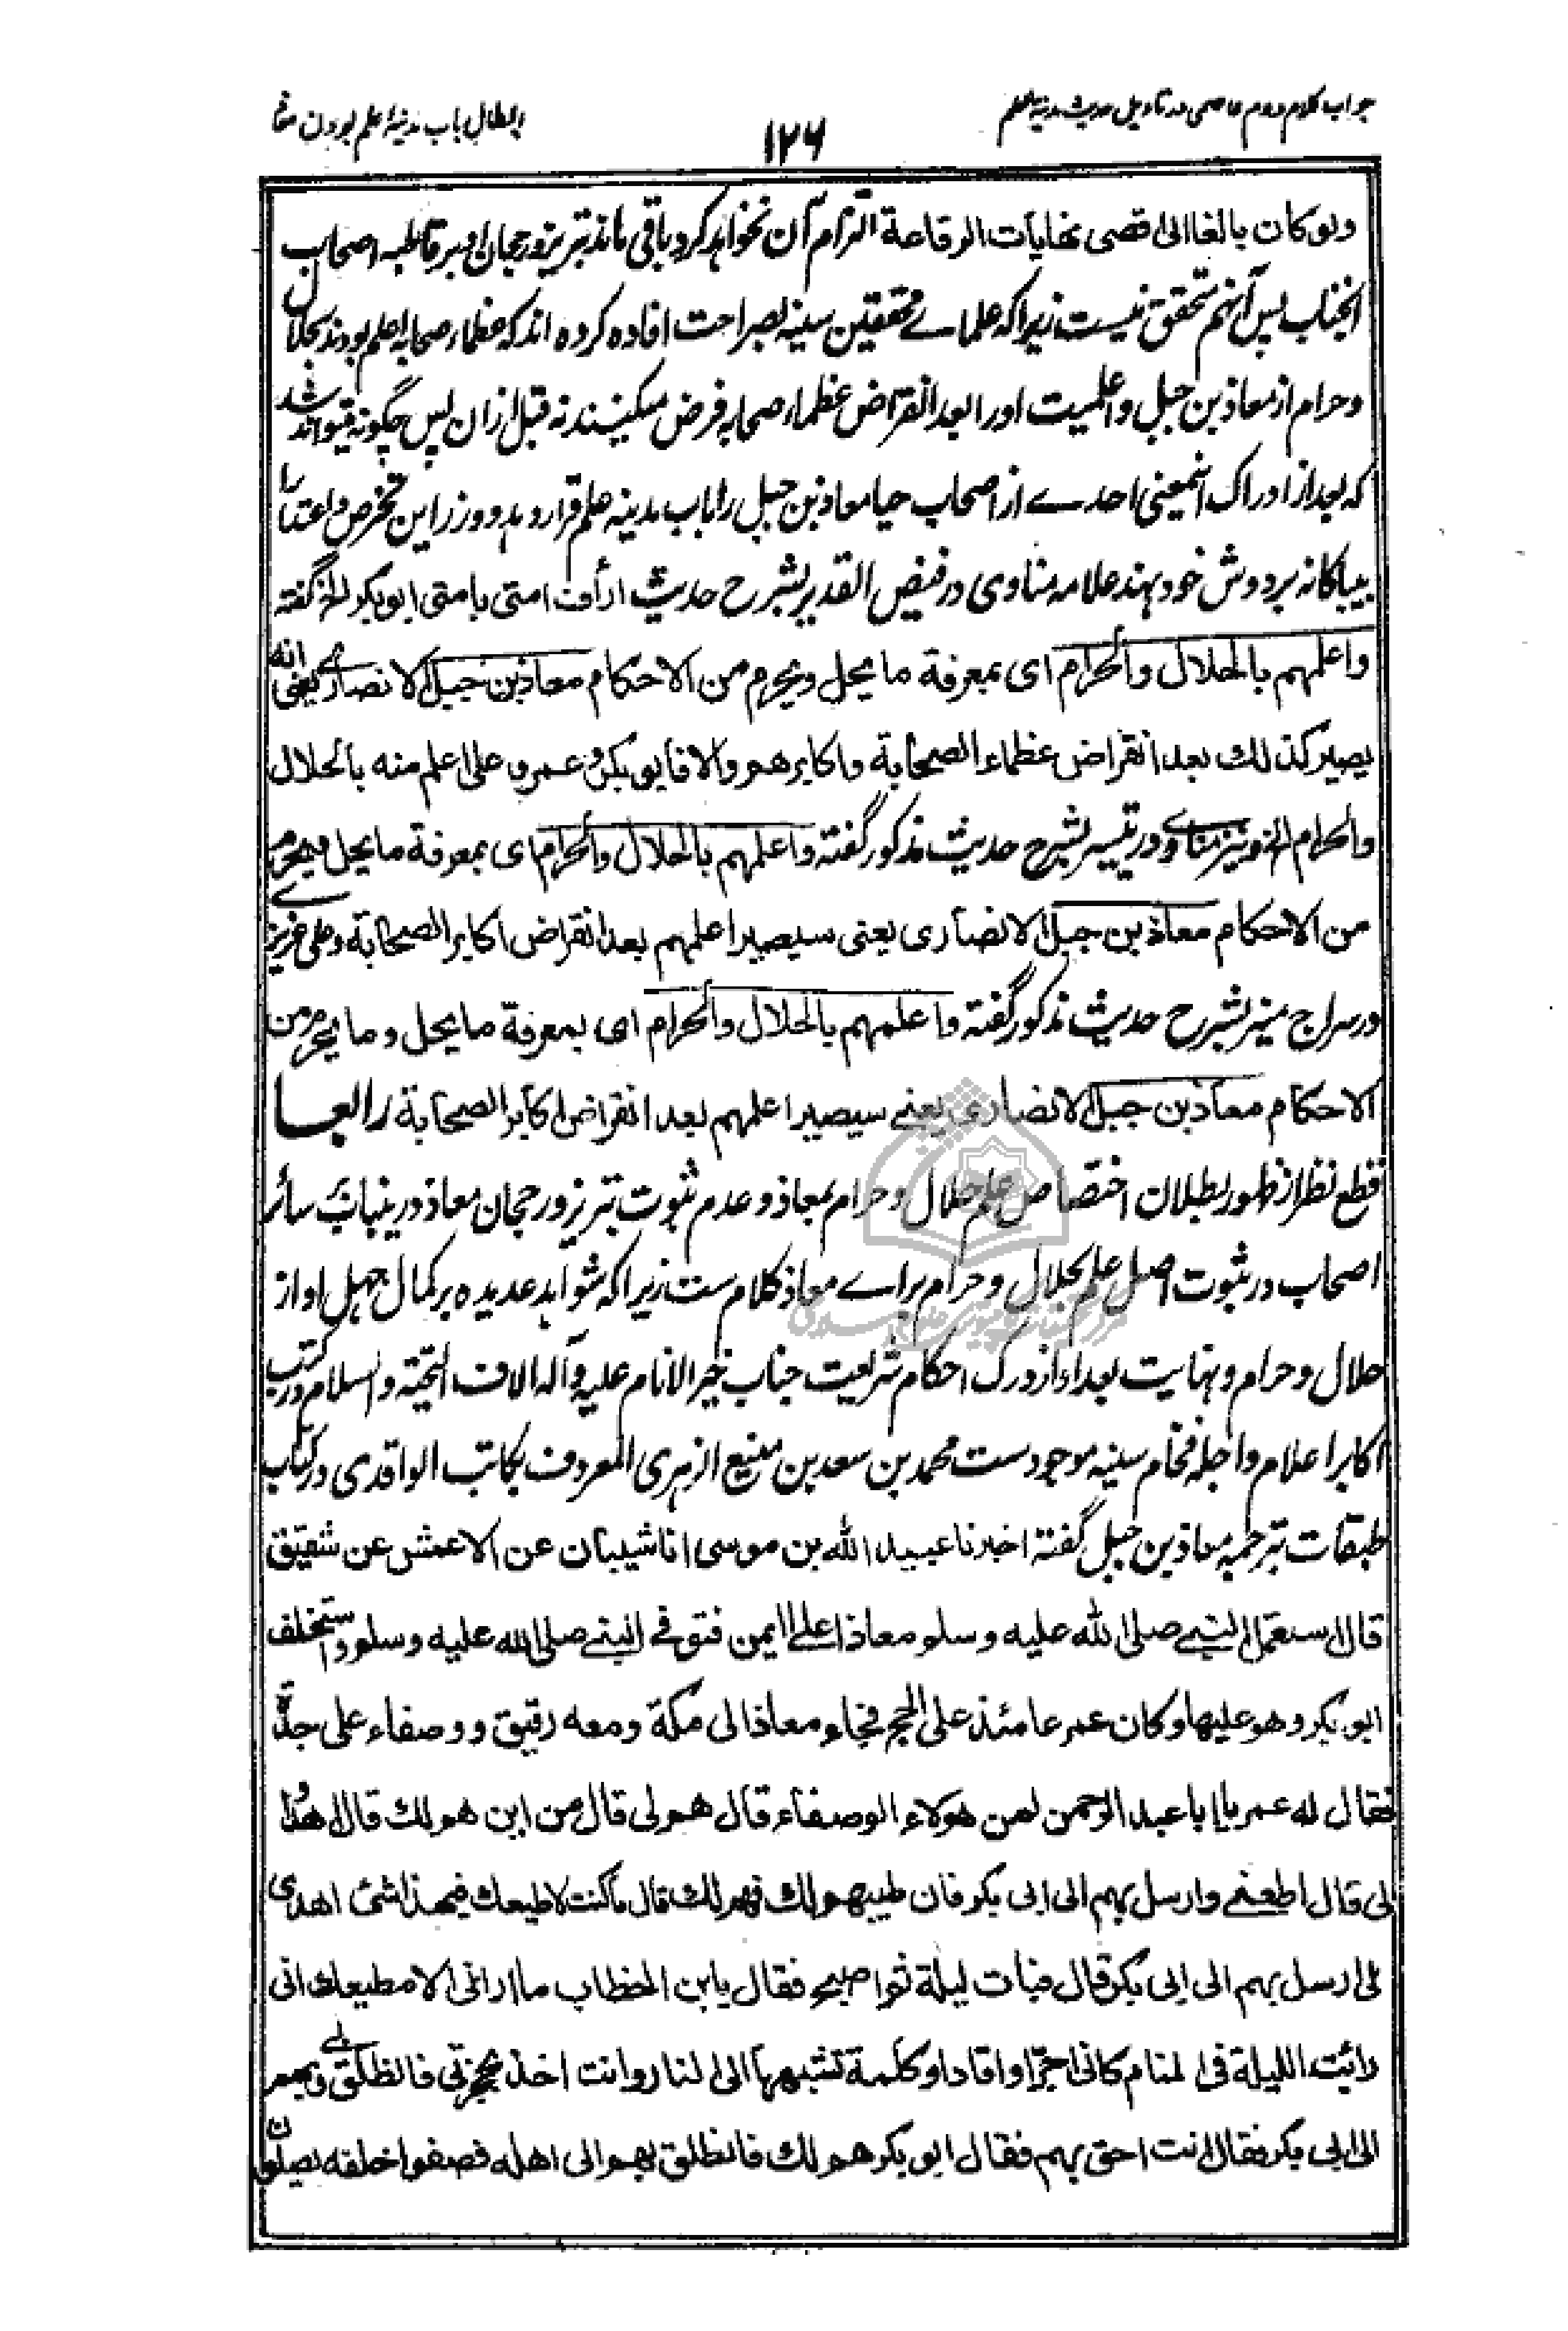 جواب کلام دوم عاصمی در تاویل حدیث مدینة العلم
۱۲۶
ابطال باب مدینهٔ علم بودن معاذ
ولو کان بالغا الی اقصی نهایات الرقاعة التزام آن نخواهد کرد باقی ماند تبریز و رجحان او بر قاطبه اصحاب
آنجناب پس آنهم متحقق نیست زیرا که علمای محققین سنیه بصراحت افاده کرده اند که عظماء صحابه اعلم بودند بحلال
و حرام از معاذ بن جبل و اعلمیت او را بعد انقراض عظماء صحابه فرض میکنند نه قبل ازان پس چگونه میتواند شد
که بعد از ادراک اینمعنی احدے از اصحاب حیا معاذ بن جبل را باب مدینه علم قرار دهد و وزر این تخرص و اعتدا را
بیباکانه بر دوش خود نهد علامه مناوی در فیض القدیر بشرح حدیث ارأف امتی بامتی ابوبکر الخ گفته
واعلمهم بالحلال والحرام ای بمعرفة ما یحل ویحرم من الاحکام معاذ بن جبل الانصاری یعنی انه
یصیر کذلك بعد انقراض عظماء الصحابة واکابرهم والا فابوبکر وعمر وعلی اعلم منه بالحلال
والحرام الخ و نیز مناوی در تیسیر بشرح حدیث مذکور گفته واعلمهم بالحلال والحرام ای بمعرفة ما یحل ویحرم
من الاحکام معاذ بن جبل الانصاری یعنی سیصیر اعلمهم بعد انقراض اکابر الصحابة و علی عزیزی
در سراج منیر بشرح حدیث مذکور گفته واعلمهم بالحلال والحرام ای بمعرفة ما یحل وما یحرم من
الاحکام معاذ بن جبل الانصاری یعنی سیصیر اعلمهم بعد انقراض اکابر الصحابة رابعا
قطع نظر از ظهور بطلان اختصاص علم حلال و حرام بمعاذ و عدم ثبوت تبریز و رجحان معاذ درینباب بر سائر
اصحاب در ثبوت اصل علم بحلال و حرام براے معاذ کلام ست زیرا که شواهد عدیده بر کمال جهل او از
حلال و حرام و نهایت بعد او از درک احکام شریعت جناب خیر الانام علیه وآله الاف التحیة والسلام در کتب
اکابر اعلام و اجله فخام سنیه موجود ست محمد بن سعد بن منیع الزهری المعروف بکاتب الواقدی در کتاب
طبقات بترجمه معاذ بن جبل گفته اخبرنا عبید الله بن موسی انا شیبان عن الاعمش عن شقیق
قال استعمل النبی صلی الله علیه وسلم معاذا علی الیمن فتوفی النبی صلی الله علیه وسلم واستخلف
ابو بکر وهو علیها وکان عمر عامئذ علی الحج فجاء معاذ الی مکة ومعه رقیق ووصفاء علی حدة
فقال له عمر یا ابا عبد الرحمن لمن هولاء الوصفاء قال هم لی قال من این هم لك قال اهدوا
لی قال اطعنی وارسل بهم الی ابی بکر فان طیبهم لك فهم لك قال ما کنت لاطیعك فی هذا شئ اهدی
لی ارسل بهم الی ابی بکر قال فبات لیلة ثم اصبح فقال یابن الخطاب ما ارانی الا مطیعك انی
رأیت اللیلة فی المنام کانی اجر او اقاد او کلمة تشبهها الی النار وانت اخذ بحجزتی فانطلق بی وبهم
الی ابی بکر فقال انت احق بهم فقال ابو بکر هم لك فانطلق بهم الی اهله فصفوا خلفه یصلون